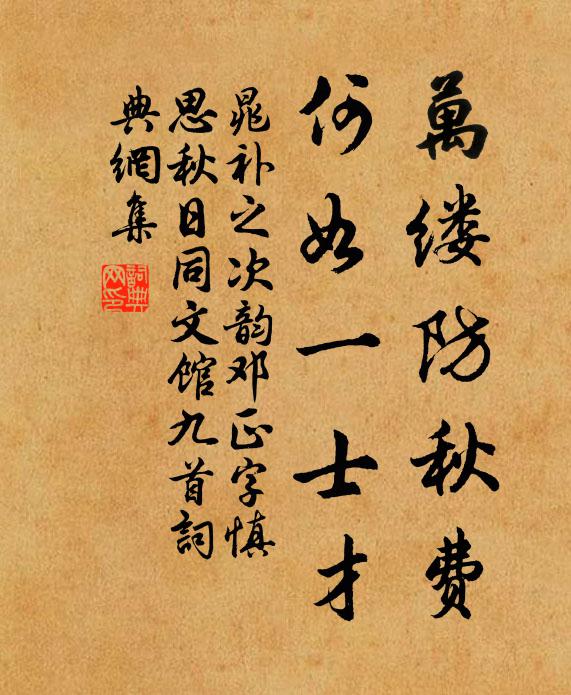 萬缕防秋费
何如一士才
晁补之次韵邓正字慎
思秋日同文馆九首詞
典網集
詞典网印